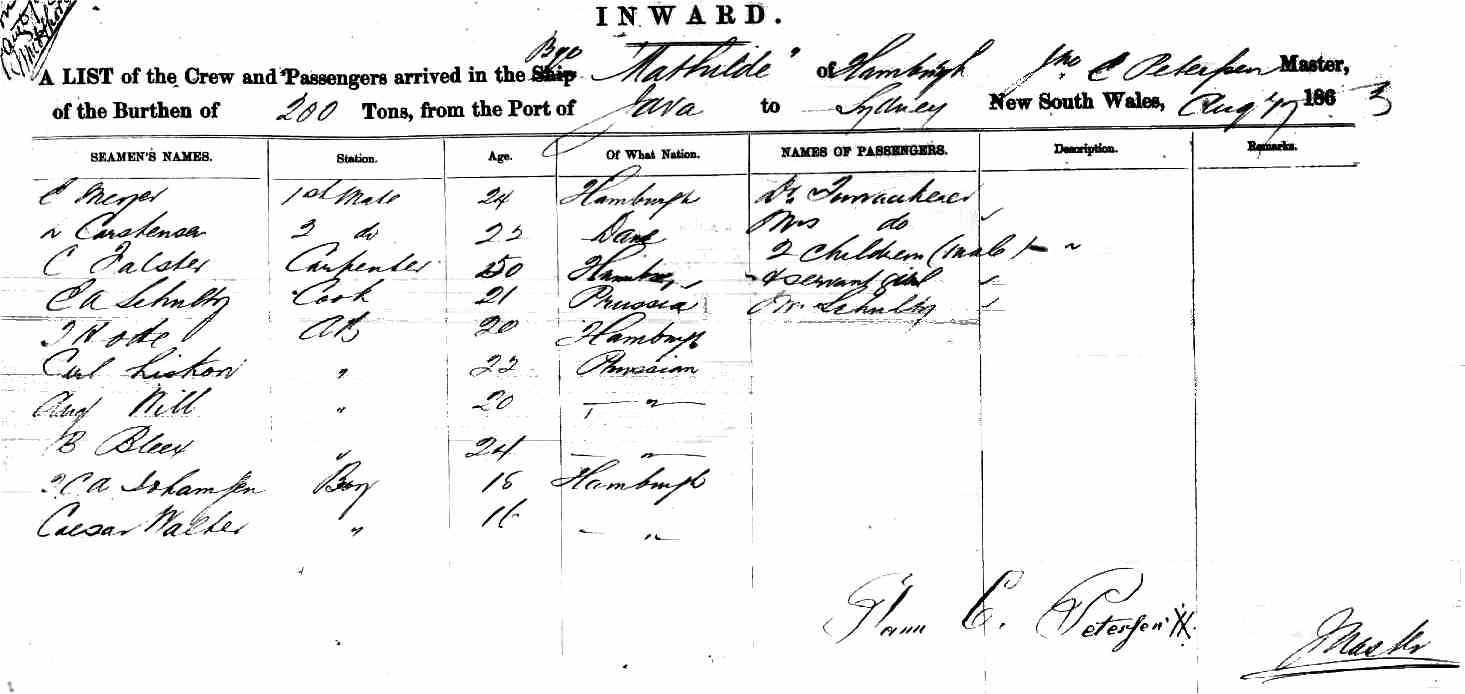 INWARD.
A LIST of the Crew and Passengers arrived in the Ship "Mathilde" of Hamburgh Jno C Petersen Master,
of the Burthen of 200 Tons, from the Port of Java to Sydney New South Wales, Aug 1863
SEAMEN'S NAMES. Station. Age. Of What Nation. NAMES OF PASSENGERS. Description. Remarks.
C Meyer 1st Mate 24 Hamburgh Dr
Carstensen 2 do 22 Dane Mrs do
C Falster Carpenter 50 Hamburg 2 children (male)
C A Schultz Cook 21 Prussia servant girl
Rode AB 20 Hamburgh Schultz
Carl " 22 Prussian
Aug Will " 20 "
B " 24 "
C A Johannsen Boy 18 Hamburgh
Caesar Walter " 16 "
C. Petersen
Master